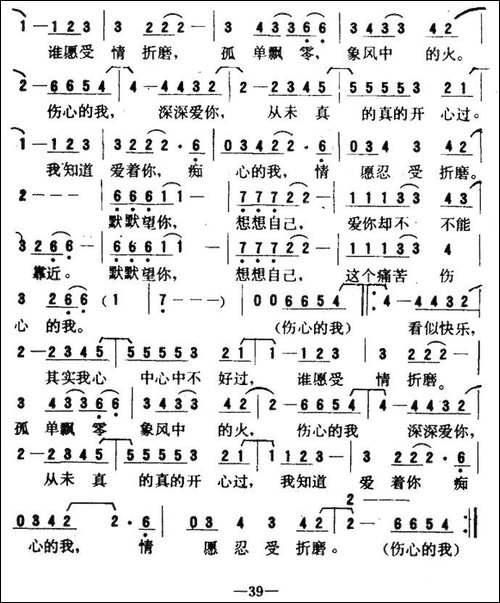 1 — 1 2 3 | 3 2 2 2 — | 3 4 3 3 6 6 | 3 4 3 3 4 2 |
谁愿受 情 折磨， 孤 单飘 零， 象风中 的火。
2 — 6 6 5 4 | 4 — 4 4 3 2 | 2 — 2 3 4 5 | 5 5 5 5 5 3 2 1 |
伤心的我， 深深爱你， 从未 真 的真的开 心过。
1 — 1 2 3 | 3 2 2 2 · 6 | 0 3 4 2 2 · 6 | 0 3 4 3 4 2 |
我知道 爱着你，痴 心的我， 情 愿忍 受 折磨。
2 — — — | 6 6 6 1 1 — | 7 7 7 2 2 — | 1 1 1 3 3 4 3 |
默默望你， 想想自己， 爱你却不 不能
3 2 6 6 — | 6 6 6 1 1 — | 7 7 7 2 2 — | 1 1 1 3 3 4 |
靠近。 默默望你， 想想自己， 这个痛苦 伤
3 2 6 6 (1 | 7 — — —) | 0 0 6 6 5 4 ‖: 4 — 4 4 3 2 |
心 的我。 (伤心的我) 看似快乐，
2 — 2 3 4 5 | 5 5 5 5 5 3 2 1 | 1 — 1 2 3 | 3 2 2 2 — |
其实我心 中心中不 好过， 谁愿受 情 折磨。
3 4 3 3 6 6 | 3 4 3 3 4 2 | 2 — 6 6 5 4 | 4 — 4 4 3 2 |
孤 单飘 零 象风中 的火， 伤心的我 深深爱你，
2 — 2 3 4 5 | 5 5 5 5 5 3 2 1 | 1 1 2 3 | 3 2 2 2 · 6 |
从未 真 的真的开 心过， 我知道 爱 着你 痴
2 — —
0 3 4 2 2 · 6 | 0 3 4 3 4 2 | 2 — 6 6 5 4 :‖
心的我， 情 愿 忍受 折磨。 (伤心的我)
—39—